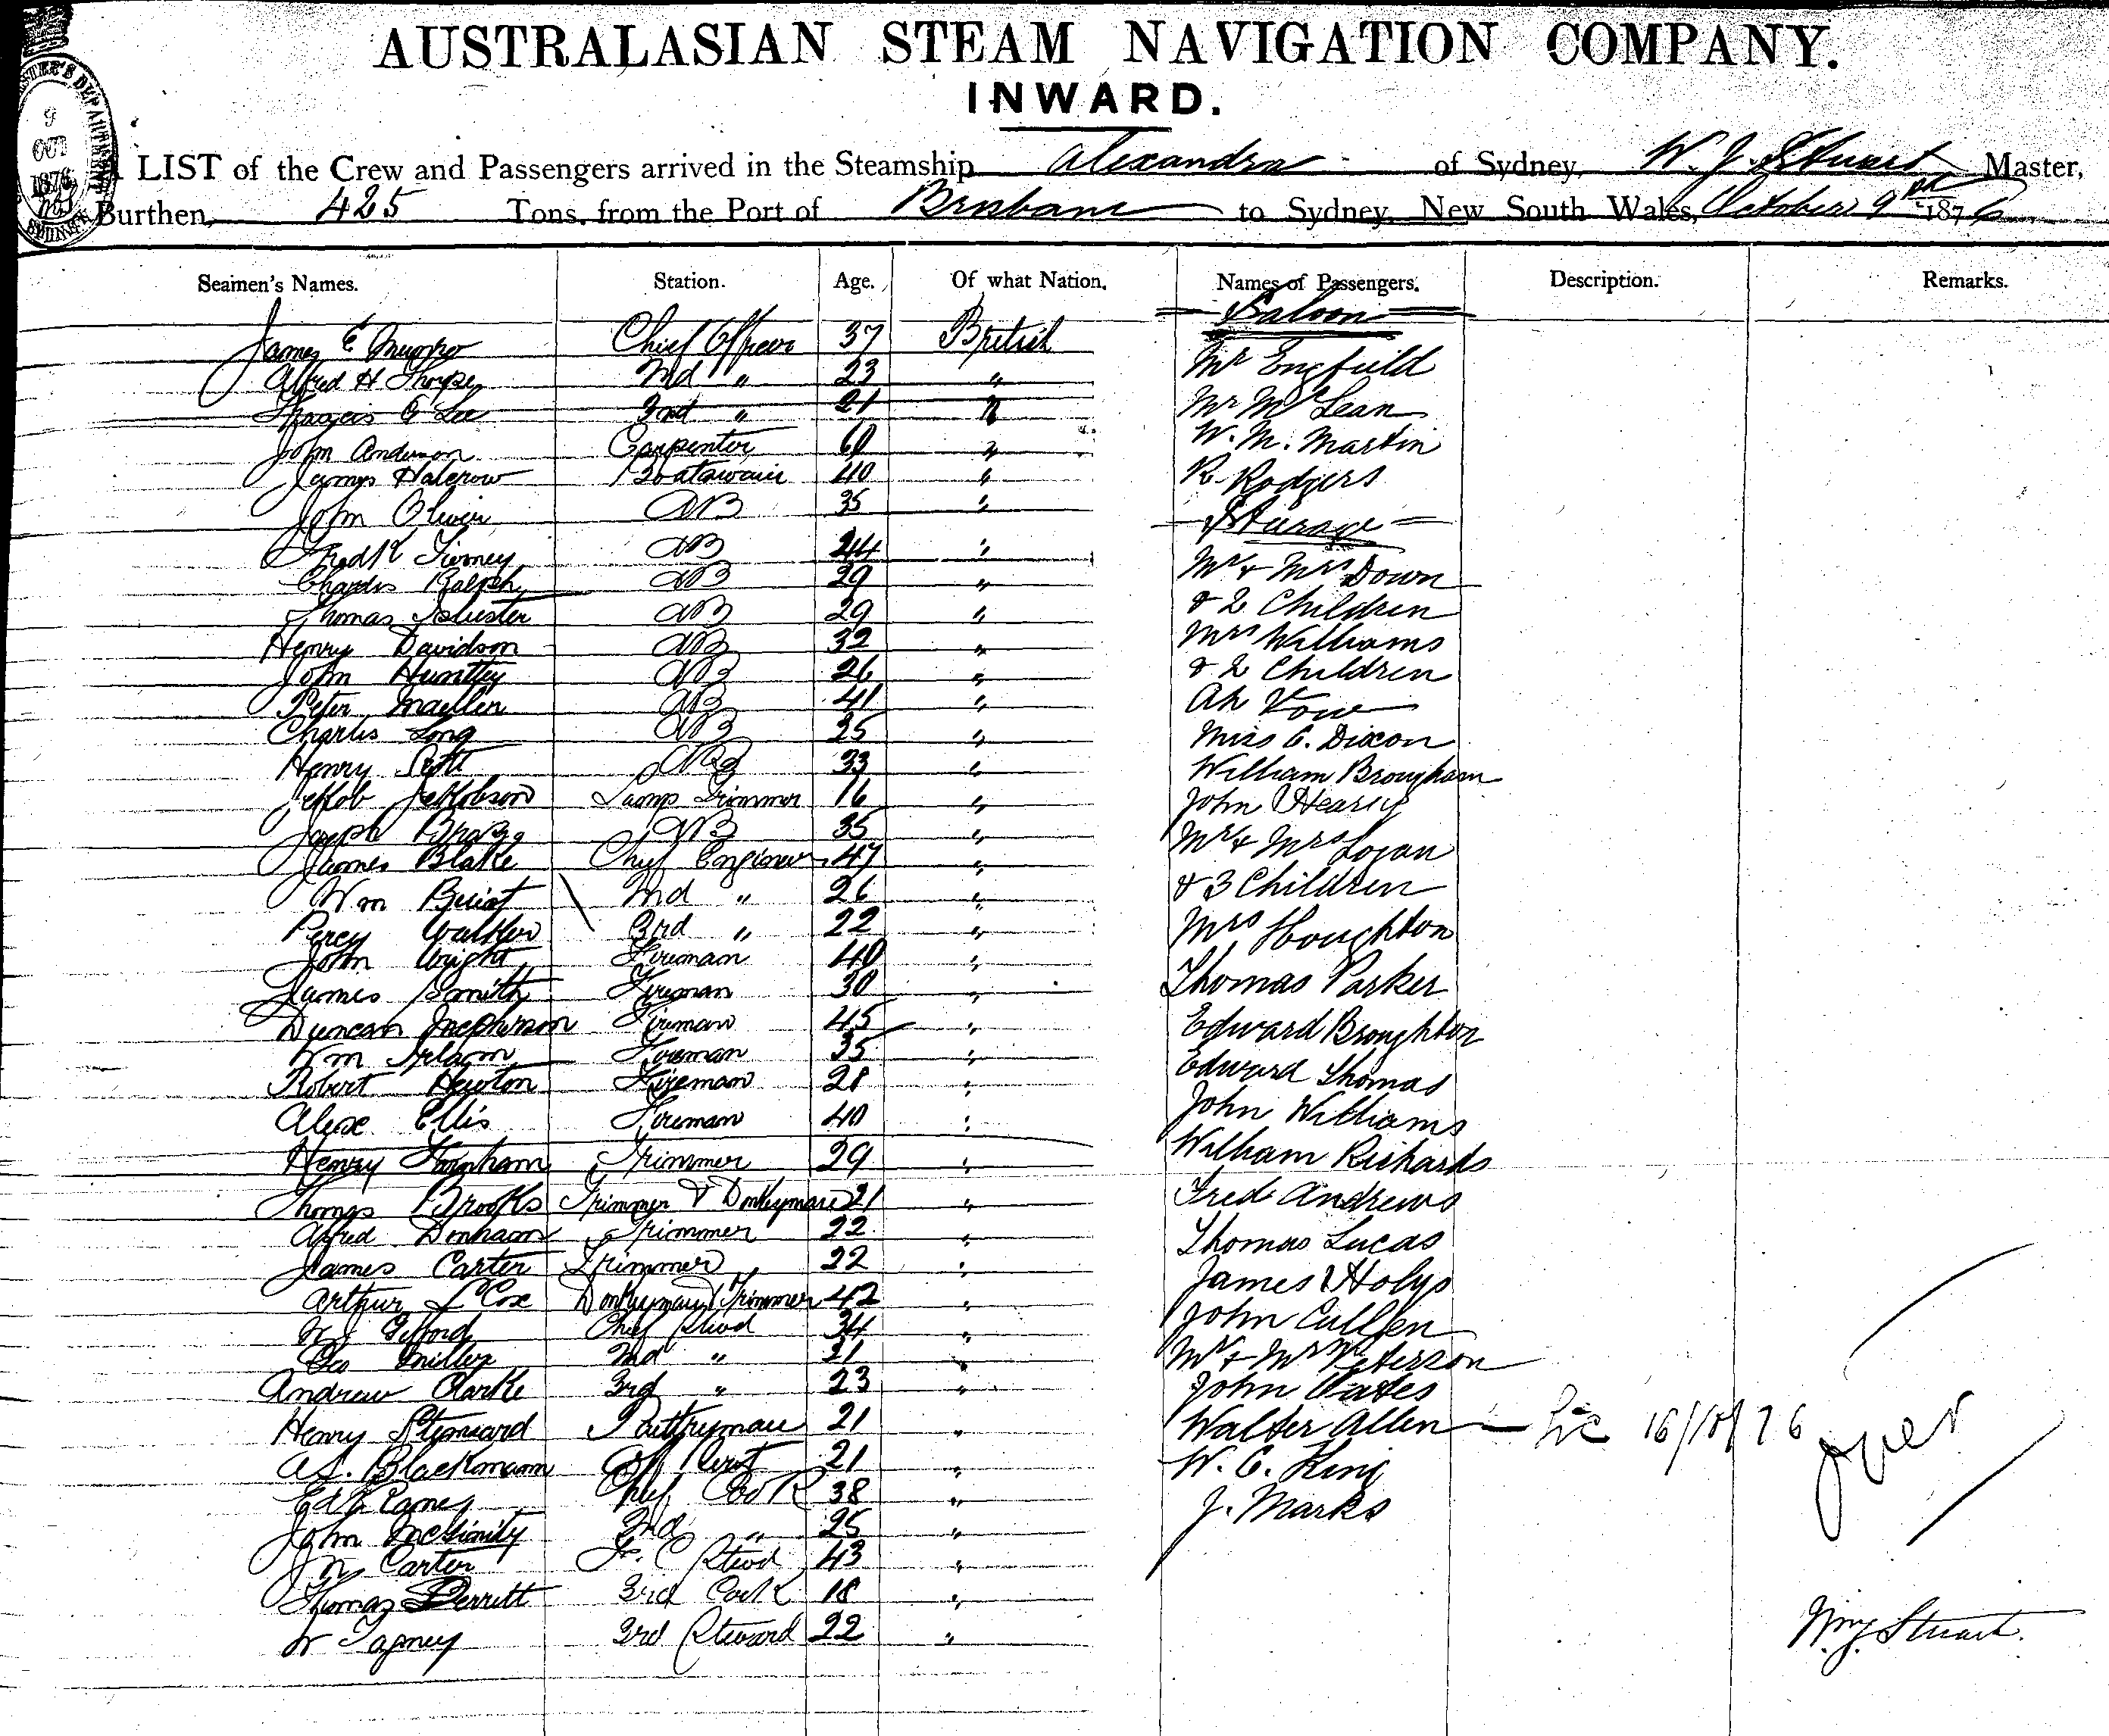 AUSTRALASIAN STEAM NAVIGATION COMPANY.
INWARD.
LIST of the Crew and Passengers arrived in the Steamship Alexandra of Sydney, W. J. Stuart Master,
Burthen, 425 Tons, from the Port of Brisbane to Sydney, New South Wales, October 9th 1876
9
OCT
1876
Seamen's Names. Station. Age. Of what Nation. Names of Passengers. Description. Remarks.
Saloon
James E Munro Chief Officer 37 British
Mr Engfield
Alfred H Thorpe 2nd " 23 "
Francis G Lee 3rd " 21 "
Mr McLean
John Anderson Carpenter 60 "
W. M. Martin
James Halcrow Boatswain 40 "
R Rodgers
John Oliver AB 35 "
Steerage
Fredk Tierney AB 24 "
Mr & Mrs Down
Charles Ralph AB 29 "
& 2 Children
Thomas AB 29 "
Henry Davidson AB 32 "
Mrs Williams
John Huntley AB 26 "
& 2 Children
Peter AB 41 "
Ah
Charles Long AB 25 "
Miss C. Dixon
Henry Scott AB 33 "
William Brougham
Jakob Jakobson Lamp Trimmer 16 "
John Hearly
Joseph AB 35 "
Mr & Mrs Logan
James Blake Chief Engineer 47 "
& 3 Children
Wm 2nd " 26 "
Percy Walker 3rd " 22 "
Mrs Houghton
John Wright Fireman 40 "
James Smith Fireman 30 "
Thomas Parker
Duncan McPherson Fireman 45 "
Edward Broughton
Wm Irlam Fireman 35 "
Robert Newton Fireman 28 "
Edward Thomas
Alex Ellis Fireman 40 "
John Williams
Henry Farnham Trimmer 29 "
William Richards
Thomas Brooks Trimmer & Donkeyman 21 "
Fred Andrews
Alfred Denham Trimmer 22 "
Thomas Lucas
James Carter Trimmer 22 "
James Holys
Arthur L Cox Donkeyman Trimmer 42 "
John Cullen
W J Gifford Chief Stwd 34 "
Geo Miller 2nd " 21 "
Mr & Mrs Peterson
Andrew Clarke 3rd " 23 "
John Oates
Henry Steward Pantryman 21 "
Walter Allen 16/10/76
A. S. Blackmann 21 "
W. C. King
Ed Chief Cook 38 "
J. Marks
John McGinity 2nd " 25 "
W Carter F. C Stwd 43 "
Thomas Perritt 3rd Cook 18 "
W Tapney 3rd Steward 22 "
over
Wm J. Stuart.